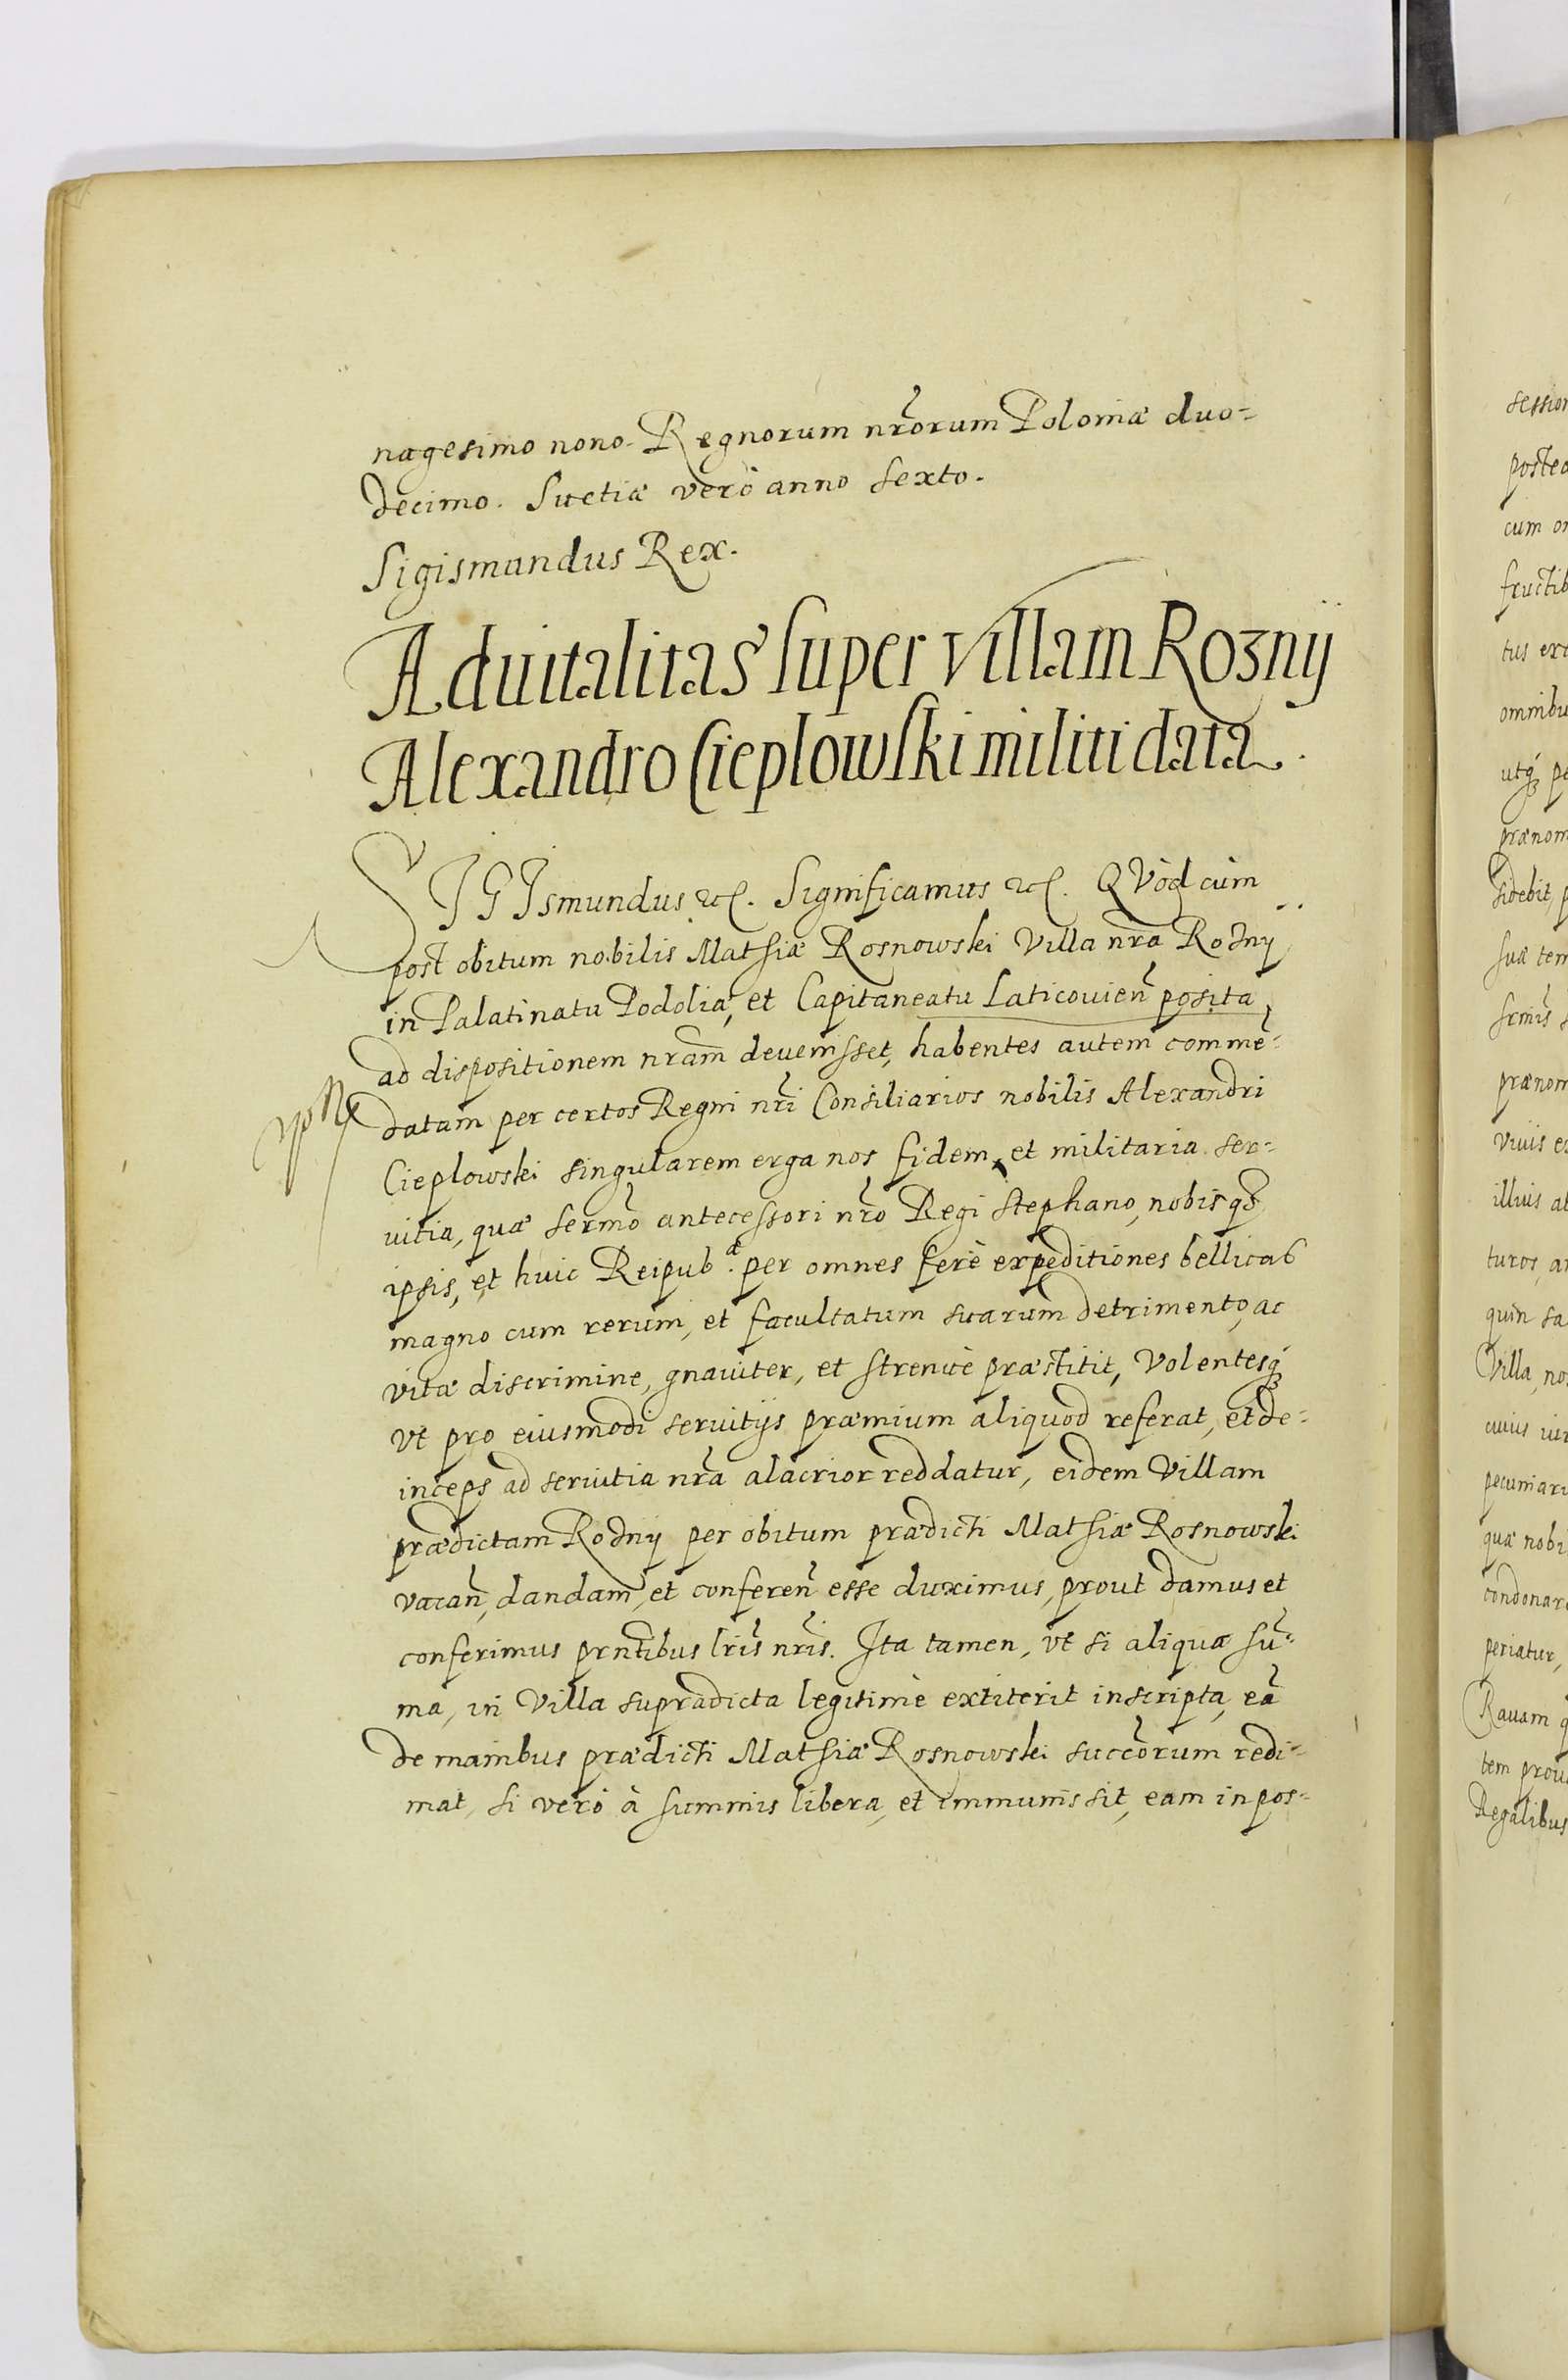 nagesimo nono. Regnorum nr̃orum Poloniæ duo-
decimo. Suetiæ verò anno sexto.
Sigismundus Rex.
Aduitalitas super villam Rozny
Alexandro Cieplowski militi data.
SIGIsmundus etc. Significamus etc. QVòd cùm
post obitum nobilis Mathiæ Rosnowski Villa nr̃a Rozny
in Palatinatu Podoliæ, et Capitaneatu Laticouien̄ posita,
ad dispositionem nr̃am deuenisset, habentes autem commē-
datam per certos Regni nr̃i Consiliarios nobilis Alexandri
Cieplowski singularem erga nos fidem, et militaria ser-
uitia, quæ sermõ antecessori nr̃o Regi Stephano, nobisq3
ipsis, et huic Reipub.æ per omnes ferè expeditiones bellicas
magno cum rerum, et facultatum suarum detrimento, ac
vitæ discrimine, gnauiter, et strenuè præstitit, Volentesq3
vt pro eiusmodi seruitijs præmium aliquod referat, et de-
inceps ad seruitia nr̃a alacrior reddatur, eidem Villam
prædictam Rozny per obitum prædicti Mathiæ Rosnowski
vacan̄, dandam, et conferen̄ esse duximus, prout damus et
conferimus prñtibus lr̃is nr̃is. Ita tamen, vt si aliqua sū-
ma, in Villa supradicta legitimè extiterit inscripta, eā
de manibus prædicti Mathiæ Rosnowski succõrum redi-
mat, si verò à summis libera, et immunis sit, eam in pos-